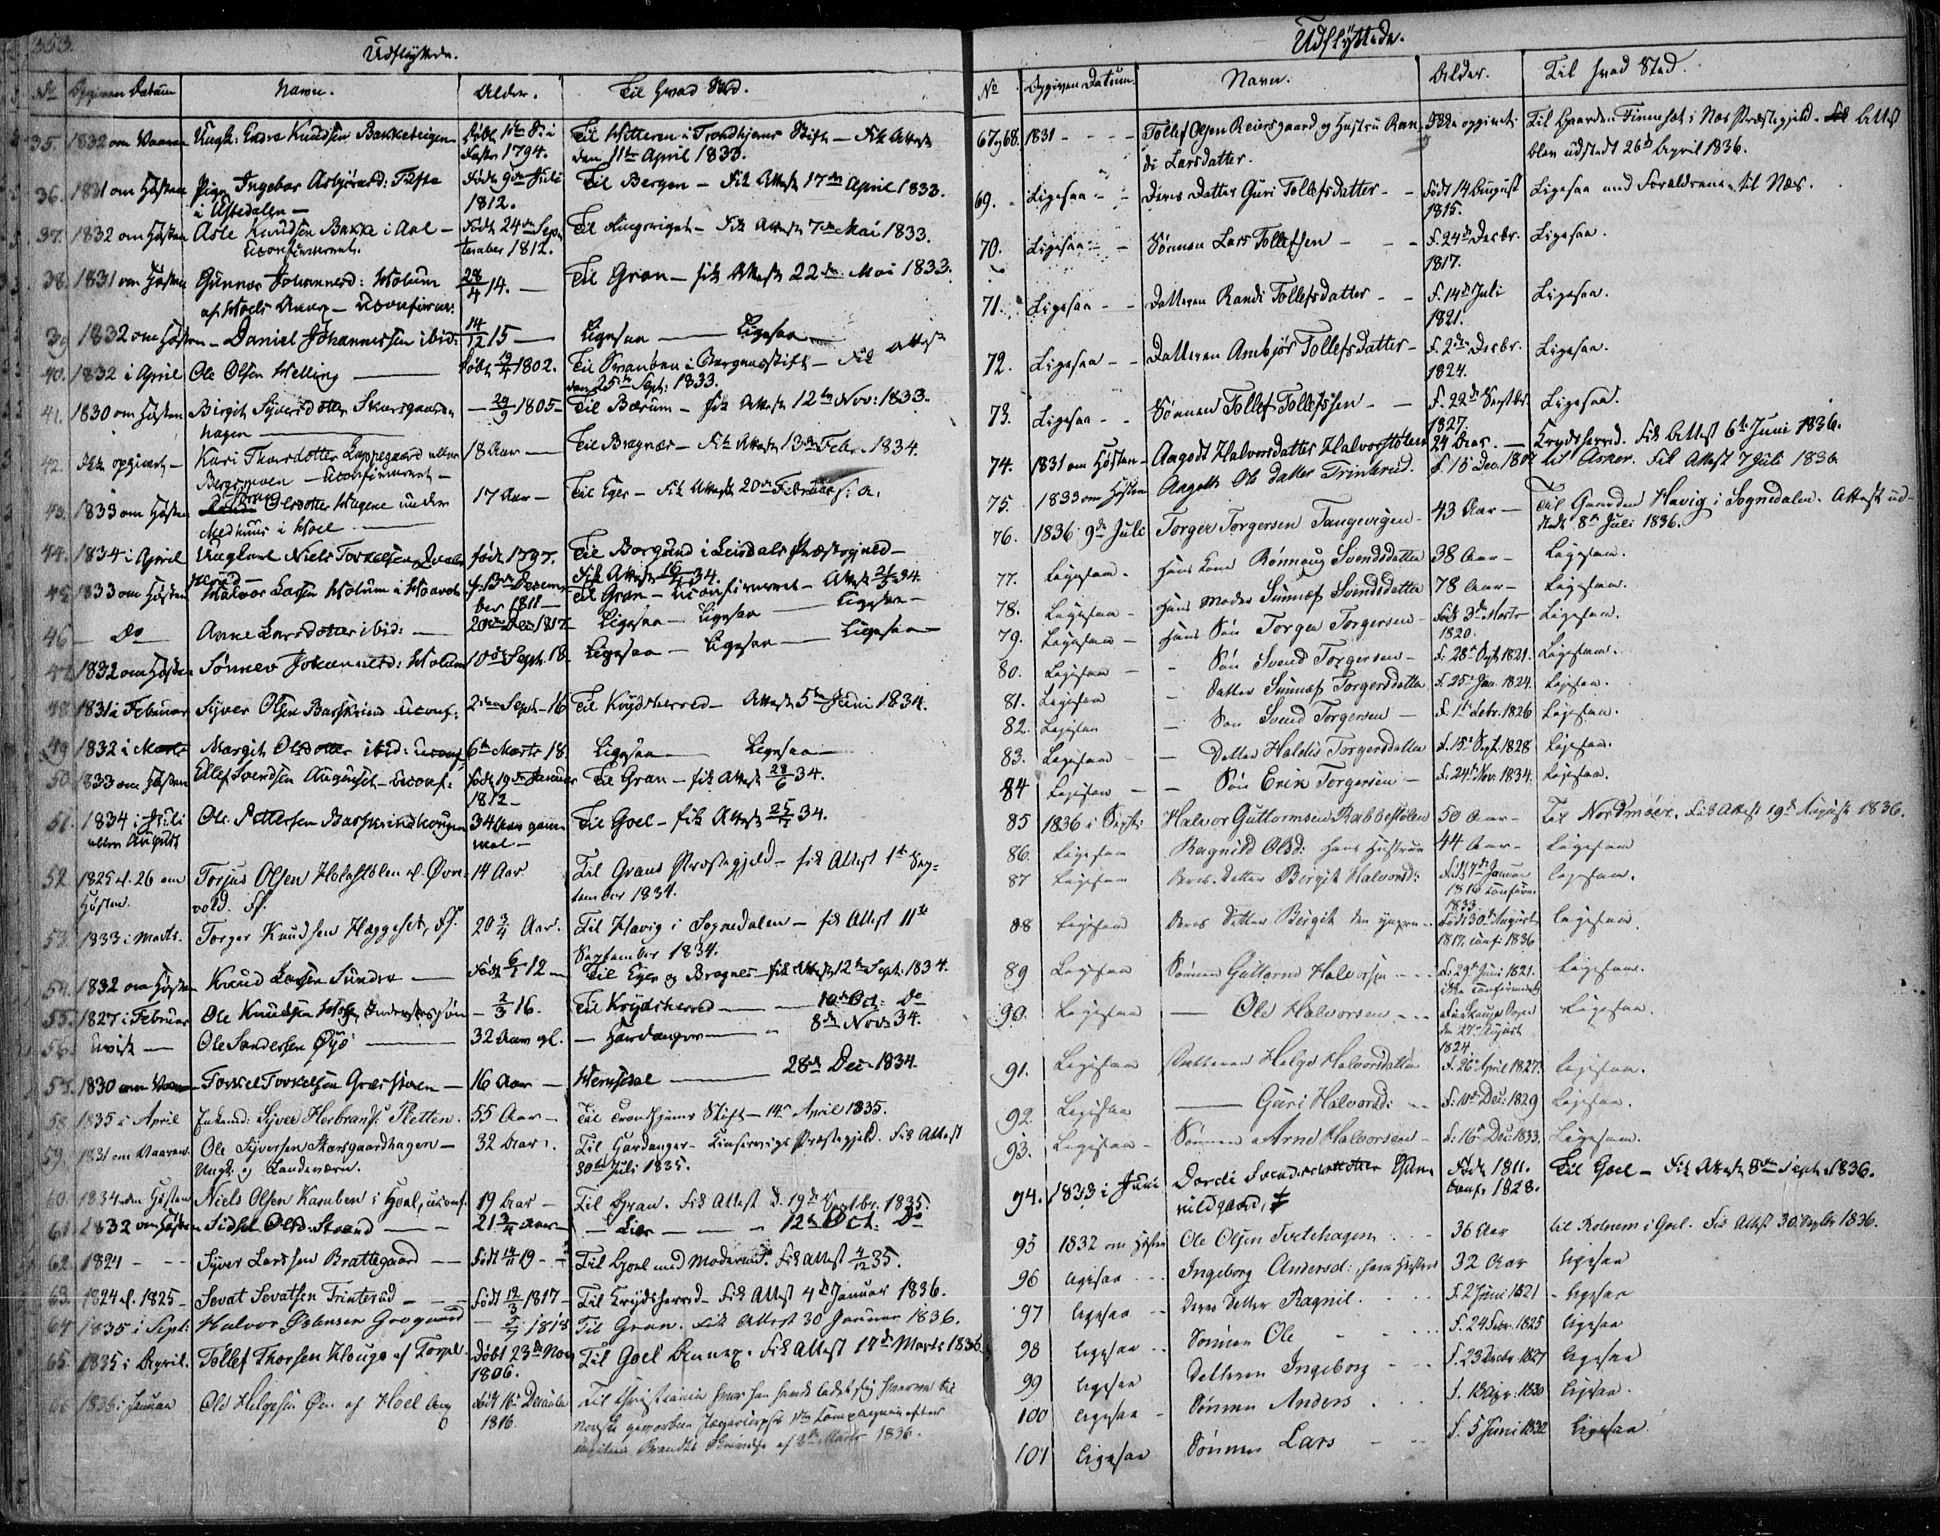 353.
Udflyttede.
No Opgiven Datum Navn. Alder. Til hvad Sted.
35. 1832 om Vaaren Ungk: Endre Knudsen Bakketeigen født
Faster 1794. den 11te April 1833.
36. 1831 om Høsten Pige Ingebor Asbjørnsd: Tufte Født 9de Juli Til Bergen – Fik Attest 17de April 1833.
i Ustedalen – 1812.
37. 1832 om Høsten Asle Knudsen Bakke i Aal – Født 24de Sep- Til Ringeriget – Fik Attest 7de Mai 1833.
Uconfirmeret. tember 1812.
38. 1831 om Høsten Gunnor Johannesd: Holum 28/4 14. – Til Gran – fik Attest 22de Mai 1833.
af Hoels Annex – Uconfirm:
39 1832 om Høsten – Daniel Johannessen ibid: 14/12 15 – Ligesaa – Ligesaa
40. 1832 i April Ole Olsen Welling – født 1802. Til i Bergensstift – Fik Attest
den 25de Sept: 1833.
41. 1830 om Høsten Birgit Syversdotter Skarsgaards- – 29/9 1805 – Til Bærum – fik Attest 12te Nov: 1833.
hagen –
42. Ikke opgivet – Kari Thorsdotter Lappegaard eller 18 Aar – Til Bragnæs – Fik Attest 13de Febr. 1834.
Bergsmoen – Uconfirmeret –
43. 1833 om Høsten Olsdotter Hagene under 17 Aar – Til Eger – Fik Attest 20de Februar s: A.
Medhuus i Hoel –
44. 1834 i April Ungkarl Niels Torkelsen født 1797. Til Borgund i Leirdals Præstegjeld –
Fik Attest 34.
45. 1833 om Høsten Halvor Larsen Holum i f. Decem- Til Gran – Uconfirmeret – Attest 34.
ber 1811 –
46 – Do Anne Larsdotter ibid: – 20de Dec 1817 Ligesaa – Ligesaa – Ligesaa –
47. 1832 om Høsten Johannesd: Holum 10de Sept. 18 Ligesaa – Ligesaa – Ligesaa –
48. 1831 i Februar Syver Olsen Uconf: Sept. 16 Til Krydsherred – Attest 5te Juni 1834.
49 1832 i Marts Margit Olsdotter ibid: Uconf 6te Marts 18. Ligesaa – Ligesaa –
50. 1833 om Høsten Ellef Svendsen – Uconf: Født 19de Januar Til Gran – fik Attest 28/6 34.
1812 –
51. 1834 i Juli Ole Pettersen 34 Aar gam- Til Goel – fik Attest 34.
eller August mel –
52. 1825 el. 26 om Torjus Olsen el. Øvre- 14 Aar Til Grans Præstegjeld – fik Attest 1te Sep-
Høsten. vold. tember 1834.
53. 1833 i Marts. Torger Knudsen Hæggeset, 20 3/4 Aar. Til Havig i Sognedalen – fik Attest 11te
September 1834.
54. 1832 om Høsten Knud Larsen Sundre – Født 12 – Til Eger og Bragnes – fik Attest 12te Sept: 1834.
55. 1827 i Februar Ole Knudsen – 2/3 16. Til Krydsherred – 10de Oct: Do
56. Uvist – Ole Sandersen Øyo – 32 Aar gl. – Hardanger – 8de Nov: 34.
57. 1830 om Torkel Torkelsen – 16 Aar – Hemsedal – 28de Dec. 1834.
58. 1835 i April Syver Herbrands: Sletten. 55 Aar – Til Trondhjems Stift – 14de April 1835.
59. 1831 om Vaaren Ole Syversen Skarsgaardhagen – 32 Aar. Til Hardanger – Kinservigs Præstegjeld. Fik Attest
Ungk: og Landeværn. 30te Juli 1835.
60. 1834 om Høsten Niels Olsen Kamben i Hoel, uconf. 19 Aar – Til Gran. Fik Attest d. 19de Septbr. 1835.
61. 1832 om Høsten Sidsel Olsd. Strand – 21 3/4 Aar – – Lier – 12te Oct: Do
62. 1824 – – Syver Larssen Brattegaard – – Født 19 – Til Goel med Moderen. Fik Attest 4/12 35.
63. 1824 el. 1825 – Sevat Sevatsen Trinterud – – Født 12/3 1817 – Til Krydsherred – Fik Attest 4de Januar 1836.
64 1835 i Sept: Halvor Grogaard – 1818 Til Gran. Fik Attest 30 Januar 1836.
65. 1835 i April. Tollef Thorsen af Torpe. Født 23de Nov Til Goel Annex. Fik Attest 17de Marts 1836.
1806.
66 1836 i Januar Ole Helgesen af Hoel Anx født 16de December Til Christiania hvor han havde ladet sig hverve til
1816. Norske gevorbne Jægercorps's Compagnie efter
Brandts af Marts 1836.
Udflyttede.
No Opgiven Datum. Navn. Alder. Til hvad Sted.
67 og 68. 1831 – – – Tollef Olsen Reiersgaard og Hustru Ran- Ikke opgivet. Til Gaarden i Næs Præstegjeld. Attest
di Larsdatter. blev udstedt 26de April 1836.
69. Ligesaa – – Deres Datter Guri Tollefsdatter – – Født 14 August Ligesaa med Forældrene til Næs.
1815.
70. Ligesaa – – Sønnen Lars Tollefsen – – – f. 24de Decbr. Ligesaa.
1817.
71. Ligesaa – – Datteren Randi Tollefsdatter – – f. 14de Juli Ligesaa.
1821.
72. Ligesaa – – Datteren Ambjør Tollefsdatter – f. 2den Decbr. Ligesaa.
1824.
73. Ligesaa – – Sønnen Tollef Tollefssen – – f. 22de Septbr. Ligesaa.
1827.
74. 1831 om Høsten – Aagodt Halvorsdatter Halvorstølen 24 Aar. – Krydsherred. Fik Attest 6te Juni 1836.
75. 1833 om Høsten Aagoth Ols datter Trinterud. f. 16 Dec. 1807 til Asker. Fik Attest 7 Juli 1836
76. 1836 9de Juli Torger Torgersen Tangevigen – 43 Aar – Til Gaarden Havig i Sogndalen. Attest ud-
stedt 8de Juli 1836.
77. Ligesaa. Hans Kone Rønnoug Svendsdatter 38 Aar – Ligesaa.
78. Ligesaa – Hans Moder Sunnøf Svendsdatter 78 Aar – Ligesaa.
79. Ligesaa – Hans Søn Torger Torgersen – Født 3de Marts Ligesaa.
1820.
80. Ligesaa – – Søn Svend Torgersen – f. 28de Sept 1821. Ligesaa.
81. Ligesaa – Datter Sunnøf Torgersdatter f. 25de Jan. 1824. Ligesaa.
82. Ligesaa – Søn Svend Torgersen – f. 1de Febr. 1826 Ligesaa.
83. Ligesaa – – Datter Haldis Torgersdatter f. 15de Sept. 1828 Ligesaa.
84 Ligesaa – – Søn Erik Torgersen – f. 24de Nov. 1834. Ligesaa.
85 1836 i Sept: Halvor Guttormsen Rabbestølen 50 Aar – Til Nordmøer. Fik Attest 19de August 1836.
86. Ligesaa Ragnild Olsd: Hans Hustrue 44 Aar – Ligesaa
87 Ligesaa Deres Datter Birgit Halvorsd: Født 7de Januar Ligesaa.
1816 confirm.
1833.
88 Ligesaa Deres Datter Birgit den yngre – Født 30te August Ligesaa.
1817, conf: 1836
89 Ligesaa Sønnen Guttorm Halvorsen – – f. 29de Juni 1821. Ligesaa.
ikke confirmeret
90. Ligesaa – Ole Halvorsen – – Ligesaa.
den 27de August
1824
91. Ligesaa Datteren Helge Halvorsdatter f. 26de April 1827. Ligesaa.
92. Ligesaa – Guri Halvorsd: – f. 10de Dec: 1829 Ligesaa.
93. Ligesaa – Sønnen Arne Halvorsen – f. 16de Dec: 1833. Ligesaa.
94. 1833 i Juni Dordi Svendsdotter Født 1811. Til Goel – Fik Attest 8de Sept. 1836.
nildgaard, Conf. 1828.
95 1832 om Høsten Ole Olsen Tvetehagen . . . 36 Aar til i Goel. Fik Attest 30 Septbr 1836.
96 ligesaa . . . Ingeborg Amersd: hans Hustru 32 Aar ligesaa
97 ligesaa – – deres Datter Ragnil. . . . f. 2 Juni 1821 – ligesaa
98 ligesaa – – Sønnen Ole – – – f. 24 Febr. 1825 ligesaa
99 ligesaa Datteren Ingeborg – – – f. 23 Decbr 1827 ligesaa
100 ligesaa – Sønnen Anders . . . f. 1830 ligesaa.
101 ligesaa Sønnen Lars – – f. 5 Juni 1832 ligesaa.